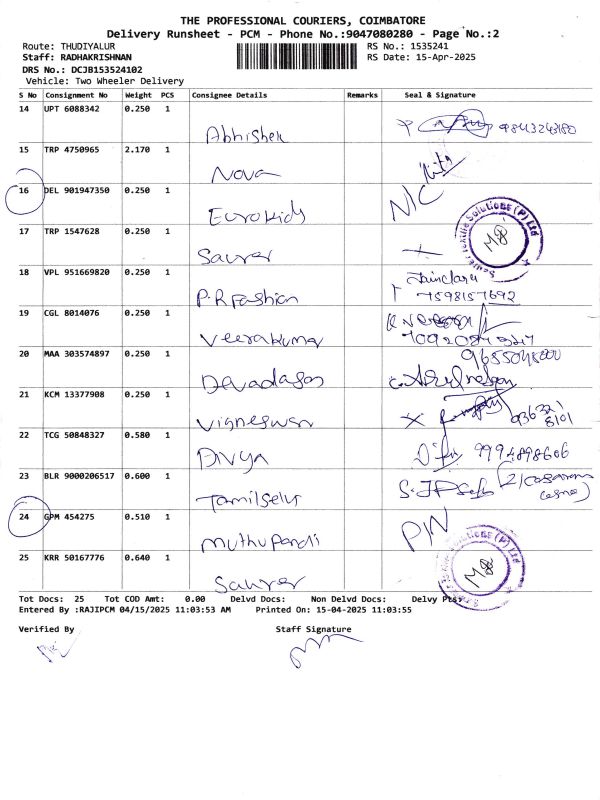 THE PROFESSIONAL COURIERS, COIMBATORE
Delivery Runsheet - PCM - Phone No.:9047080280 - Page No.:2
Route: THUDIYALUR RS No.: 1535241
Staff: RADHAKRISHNAN RS Date: 15-Apr-2025
DRS No.: DCJB153524102
Vehicle: Two Wheeler Delivery
S No Consignment No Weight PCS Consignee Details Remarks Seal & Signature
14 UPT 6088342 0.250 1
Abhishek 9843243180
15 TRP 4750965 2.170 1
Nova
16 DEL 901947350 0.250 1 N/C
Eurokids
17 TRP 1547628 0.250 1
Saurer
18 VPL 951669820 0.250 1
P.R Fashion 7598157692
19 CGL 8014076 0.250 1
Veerakumar
20 MAA 303574897 0.250 1
Devadason
21 KCM 13377908 0.250 1
Vigneswar
22 TCG 50848327 0.580 1
Divya 9994898606
23 BLR 9000206517 0.600 1
Tamilselvi
24 GPM 454275 0.510 1
Muthu Pandi
25 KRR 50167776 0.640 1
Saurer
Tot Docs: 25 Tot COD Amt: 0.00 Delvd Docs: Non Delvd Docs: Delvy Pts:
Entered By :RAJIPCM 04/15/2025 11:03:53 AM Printed On: 15-04-2025 11:03:55
Verified By Staff Signature